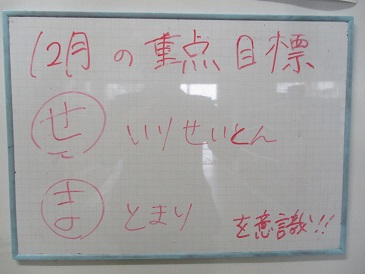 12月の重点目標
せ いりせいとん
ま とまり を意識!!